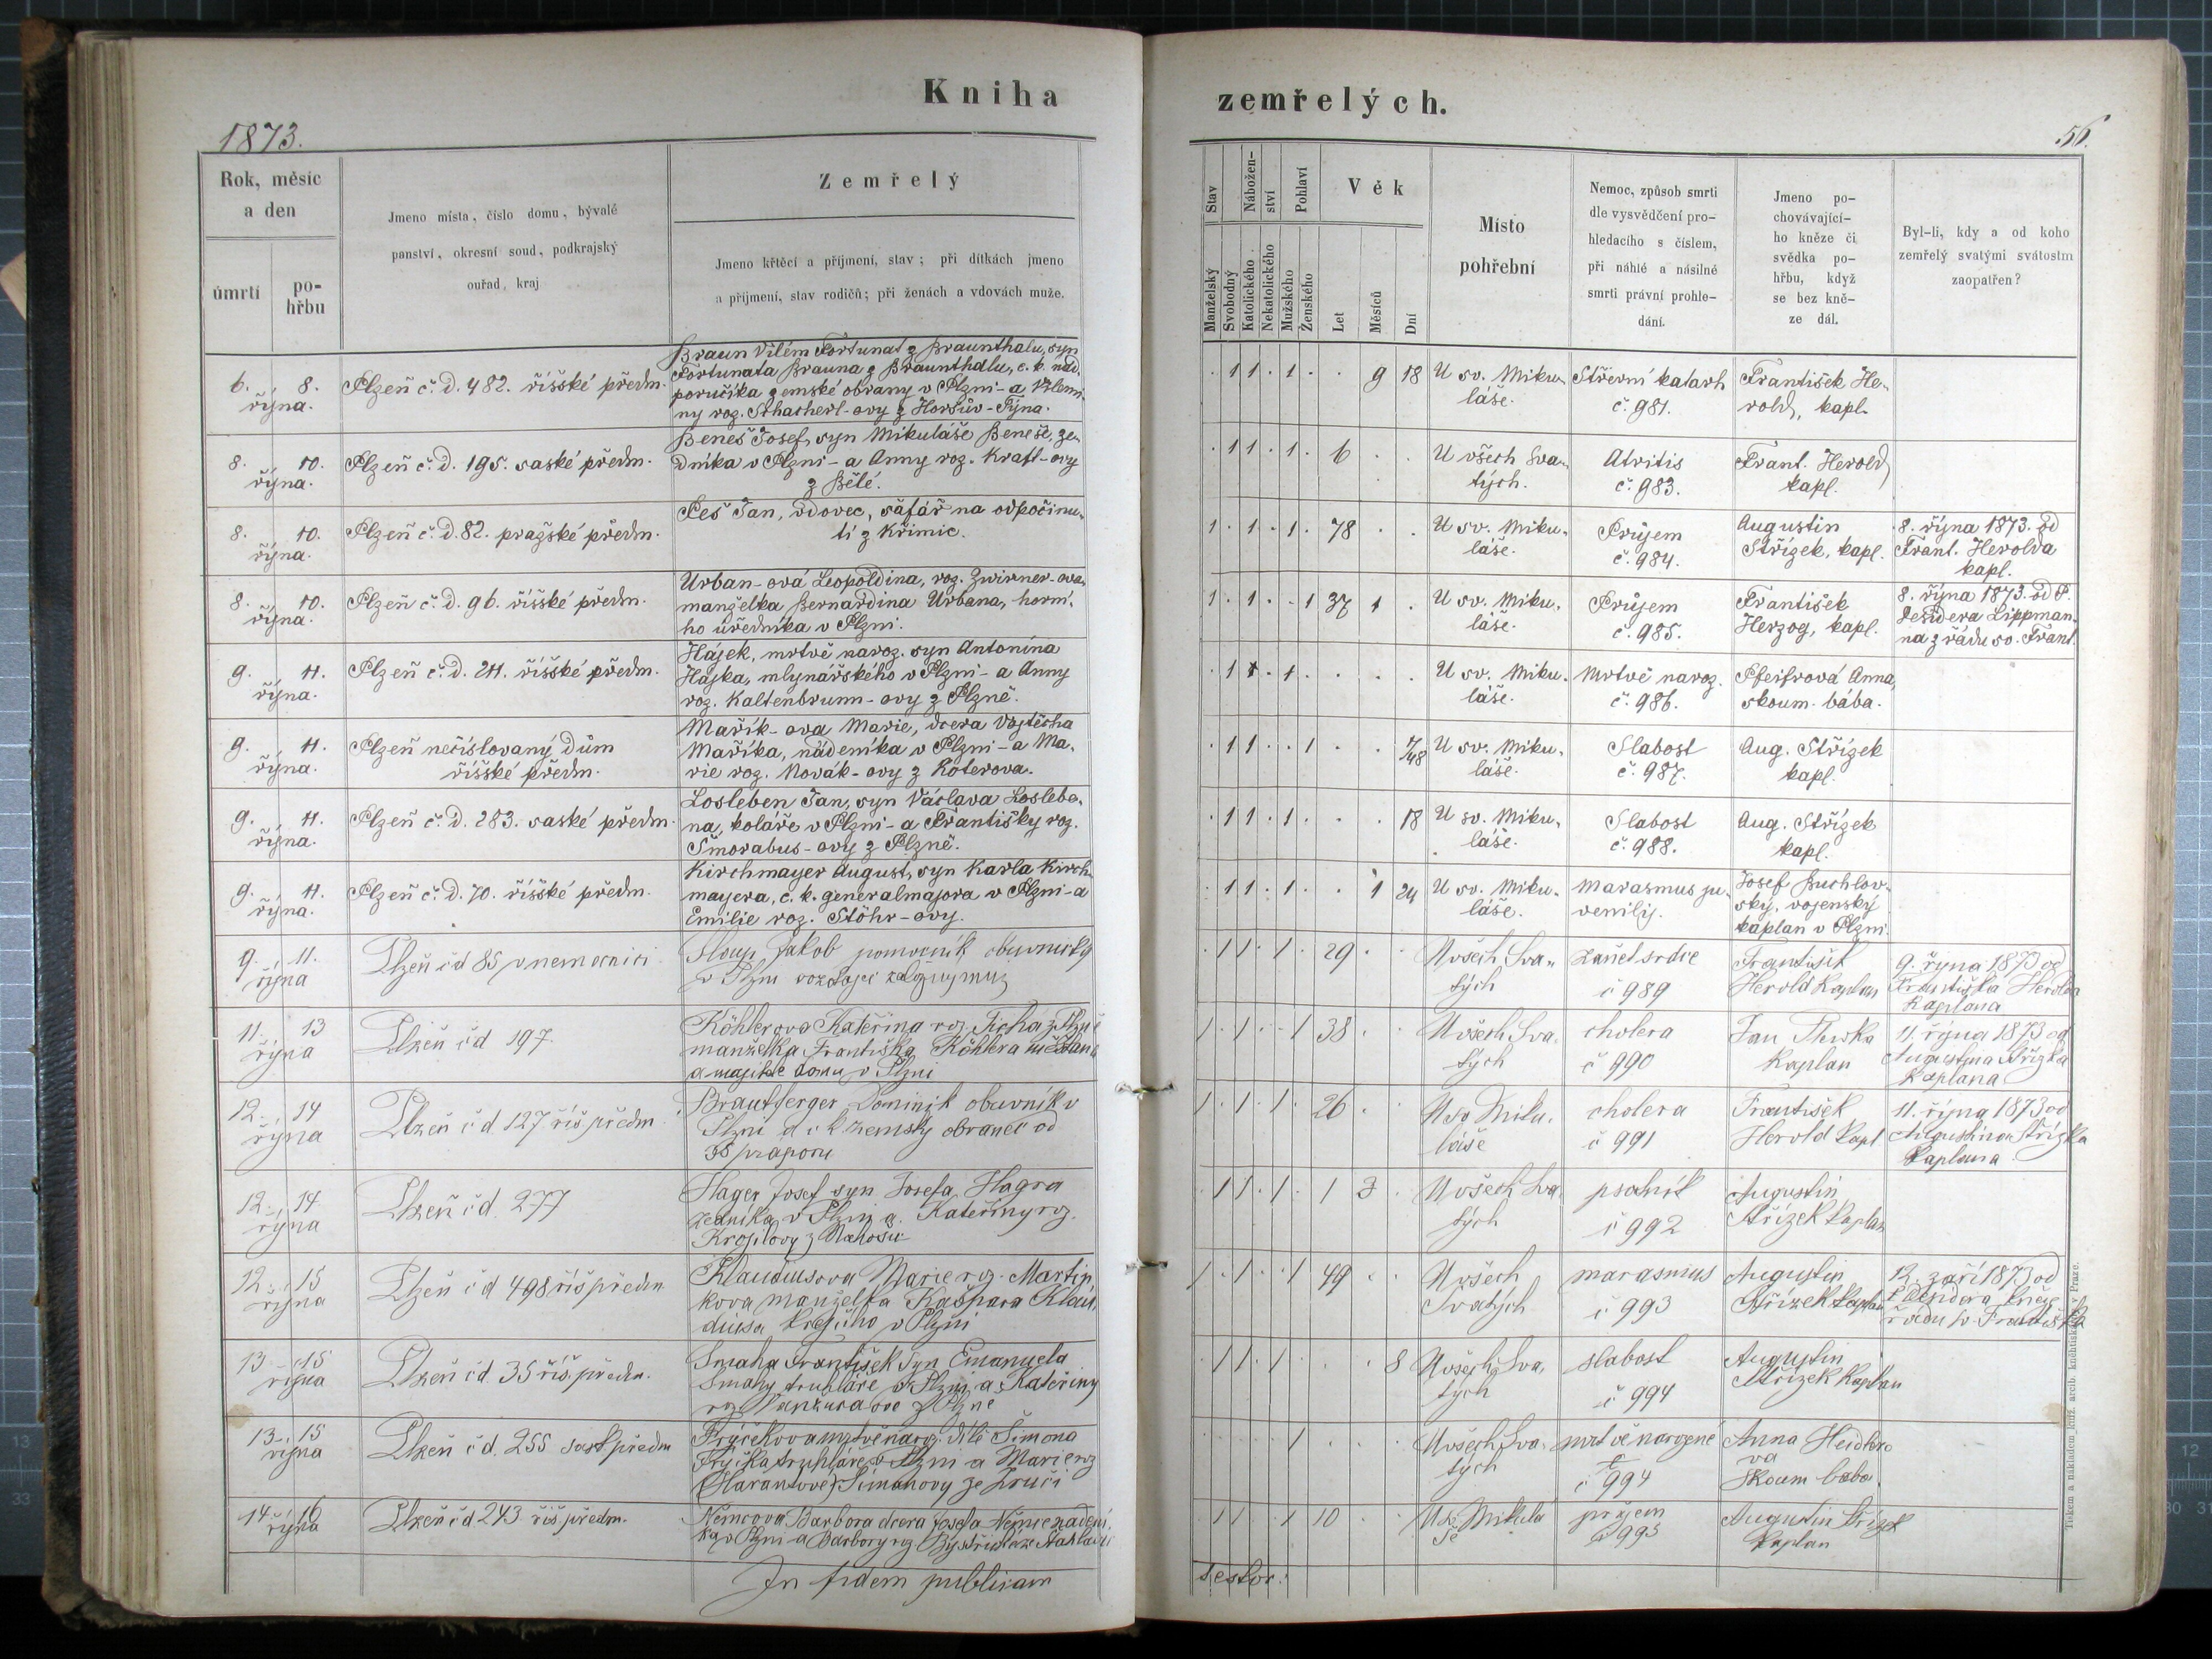 Kniha
1873.
Rok, měsíc
a den
úmrtí
po-
hřbu
Jmeno místa, číslo domu, bývalé
panství, okresní soud, podkrajský
ouřad, kraj
Zemřelý
Jmeno křtěcí a příjmení, stav; při dítkách jmeno
a příjmení, stav rodičů; při ženách a vdovách muže.
6. 8.
října.
Plzeň č. d. 482. říšské předm.
Braun Vilém Fortunat z Braunthalu, syn
Fortunata Brauna z Braunthalu, c. k. nad.
poručíka zemské obrany v Plzni - a Vilemi-
ny roz. Schacherl-ovy z Horšův-Týna.
8. 10.
října.
Plzeň č. d. 195. saské předm.
Beneš Josef, syn Mikuláše Beneše, ze-
dníka v Plzni - a Anny roz. Kraft-ovy
z Bělé.
8. 10.
října.
Plzeň č. d. 82. pražské předm.
Peš Jan, vdovec, šafář na odpočinu-
tí z Křimic.
8. 10.
října.
Plzeň č. d. 96. říšské předm.
Urban-ová Leopoldina, roz. Zwirner-ova
manželka Bernardina Urbana, horní-
ho úředníka v Plzni.
9. 11.
října.
Plzeň č. d. 211. říšské předm.
Hájek, mrtvě naroz. syn Antonína
Hájka, mlynářského v Plzni - a Anny
roz. Kaltenbrunn-ovy z Plzně.
9. 11.
října.
Plzeň nečíslovaný dům
říšské předm.
Mařík-ova Marie, dcera Vojtěcha
Maříka, nádeníka v Plzni - a Ma-
rie roz. Novák-ovy z Koterova.
9. 11.
října.
Plzeň č. d. 283. saské předm.
Losleben Jan, syn Václava Loslebe-
na, koláře v Plzni - a Františky roz.
Smorabus-ovy z Plzně.
9. 11.
října.
Plzeň č. d. 70. říšské předm.
Kirchmayer August, syn Karla Kirch-
mayera, c. k. generalmajora v Plzni - a
Emilie roz. Stöhr-ovy.
9. 11.
října
Plzeň čd 85 v nemocnici
Sloup Jakob pomocník obuvnický
v Plzni
11. 13
října
Plzeň čd 197.
Köhlerova Kateřina roz. Tichá z Plzně
manželka Františka Köhlera měšťana
a majitele domu v Plzni
12. 14
října
Plzeň č d 127 říš předm
Dominik obuvník v
Plzni a c k zemský obranec od
35 praporu
12. 14
října
Plzeň č d. 277
Hager Josef syn Josefa Hagra
zedníka v Plzni a Kateřiny roz.
12. 15
října
Plzeň č d 498 říš předm
Klaudusova Marie roz. Martin-
kova manželka Kašpara Klau-
dusa krejčího v Plzni
13 15
října
Plzeň čd. 35 říš. předm.
Smaha František syn Emanuela
Smahy truhláře v Plzni a Kateřiny
roz. z Plzně
13. 15
října
Plzeň č d. 255 sask předm
Fryčkova mrtvě naroz. dítě Šimona
Fryčka truhláře v Plzni a Marie roz
14 16
října
Plzeň č d 243 říš předm.
Němcova Barbora dcera Josefa Němce nadení-
ka v Plzni a Barbory roz.
In fidem publicam
zemřelých.
56.
Stav
Nábožen-
ství
Pohlaví
Věk
Manželský
Svobodný
Katolického
Nekatolického
Mužského
Ženského
Let
Měsíců
Dní
Místo
pohřební
Nemoc, způsob smrti
dle vysvědčení pro-
hledacího s číslem,
při náhlé a násilné
smrti právní prohle-
dání.
Jmeno po-
chovávající-
ho kněze či
svědka po-
hřbu, když
se bez kně-
ze dál.
Byl-li, kdy a od koho
zemřelý svatými svátostmi
zaopatřen?
. 1 1 . 1 . . 9 18
U sv. Miku-
láše.
Střevní katarh
č. 981.
František He-
rold, kapl.
. 1 1 . 1 . 6 . .
U všech Sva-
tých.
Atritis
č. 983.
Frant. Herold
kapl.
1 . 1 . 1 . 78 . .
U sv. Miku-
láše.
Průjem
č. 984.
Augustin
Střízek, kapl.
8. října 1873. od
Frant. Herolda
kapl.
1 . 1 . . 1 37 1 .
U sv. Miku-
láše.
Průjem
č. 985.
František
Herzog, kapl.
8. října 1873. od P.
Desidera Lippman-
na z řádu sv. Frant.
. 1 1 . 1 . . . .
U sv. Miku-
láše.
Mrtvě naroz.
č. 986.
Pfeifrová Anna,
skoum. bába.
. 1 1 . . 1 . . 7/48
U sv. Miku-
láše.
Slabost
č. 987.
Aug. Střízek
kapl.
. 1 1 . 1 . . . 18
U sv. Miku-
láše.
Slabost
č. 988.
Aug. Střízek
kapl.
. 1 1 . 1 . . 1 24
U sv. Miku-
láše.
Marasmus ju-
venilij.
Josef Buchlov-
ský, vojenský
kaplan v Plzni.
. 1 1 . 1 . 29 . .
U všech Sva-
tých
zanět srdce
č 989
František
Herold Kaplan
9. října 1873 od
Františka Herolda
Kaplana
1 . 1 . . 1 38 . .
U všech Sva-
tých
cholera
č 990
Jan
Kaplan
11. října 1873 od
Augustina Střízka
Kaplana
1 . 1 . 1 . 26 . .
U sv Miku-
láše
cholera
č 991
František
Herold Kapl
11. října 1873 od
Augustina Střízka
Kaplana
. 1 1 . 1 . 1 3 .
U všech Sva-
tých
psotník
č 992
Augustin
Střízek Kaplan
1 . 1 . . 1 49 . .
U všech
Svatých
marasmus
č 993
Augustin
Střízek Kaplan
12. září 1873 od
P. Desidera kněze
řádu sv. Františka
. 1 1 . 1 . . . 8
U všech Sva-
tých
slabost
č 994
Augustin
Střízek Kaplan
U všech Sva-
tých
mrtvě narozené
č 994
Anna Heidlro
va
Skoum baba.
. 1 1 . . 1 10 . .
U s. Mikulá
še
průjem
č 995
Augustin Střízek
Kaplan
testor.